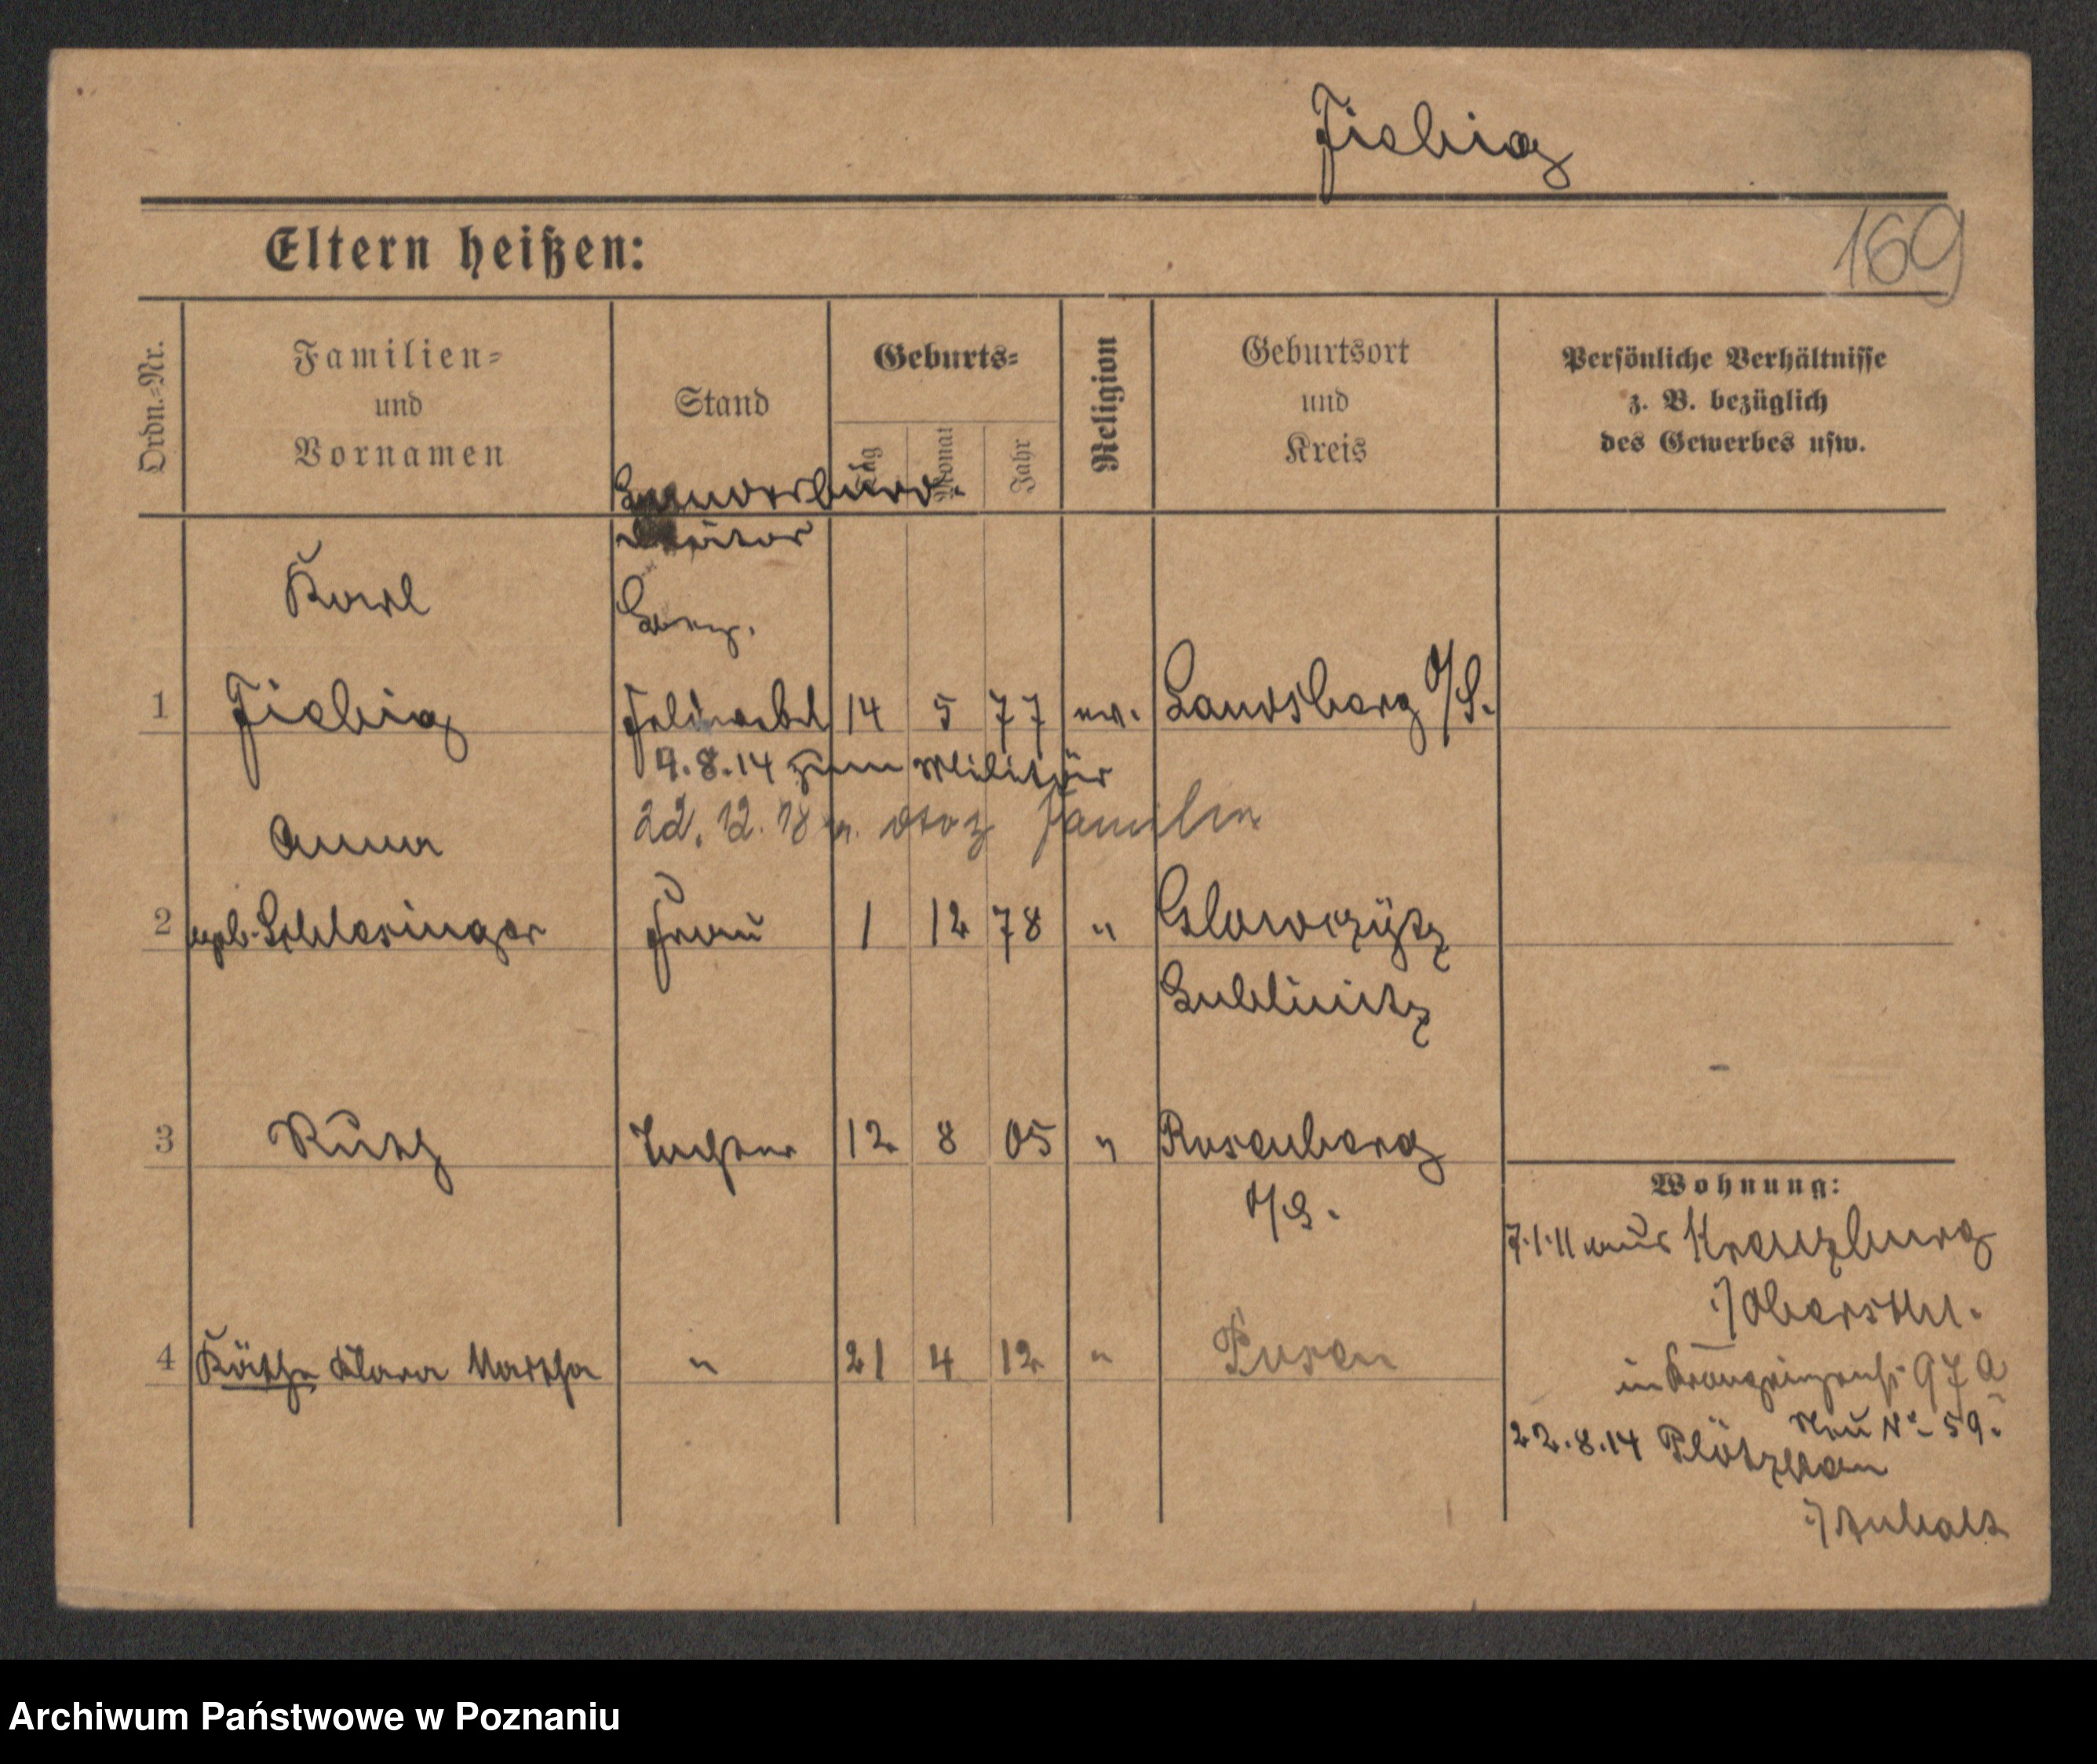 Fiebig
169
Eltern heißen:
Ordn.-Nr.
Familien-
und
Vornamen
Stand
Geburts-
Tag
Monat
Jahr
Religion
Geburtsort
und
Kreis
Persönliche Verhältnisse
z. B. bezüglich
des Gewerbes usw.
Karl
Serg.
1 Fiebig Feldwebel 14 5 77 ev. Landsberg O/S.
4.8.14 zum Militär
22. 12. 18 Familie
Anna
2 geb. Schlesinger Frau 1 12 78 "
Lublinitz
3 Ruth Tochter 12 8 05 " Rosenberg
O/S.
Wohnung:
7.1.11 aus Kreuzburg
i/Oberschl.
4 Käthe Klara Martha " 21 4 12 " Posen
in 97a
Neu No 59.
22.8.14 Plötzkau
i/Anhalt
Archiwum Państwowe w Poznaniu